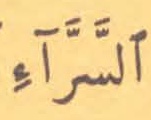 ٱلسَّرَّآءِ